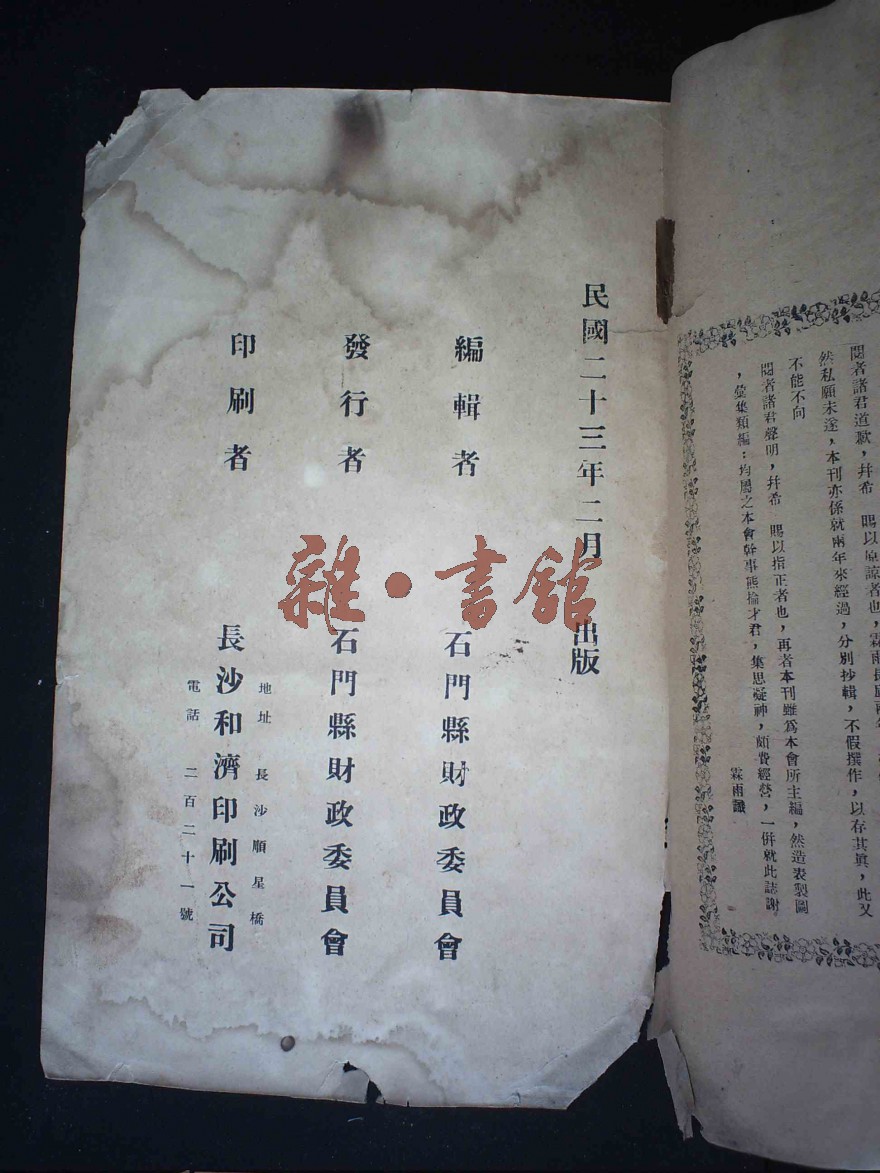 閱者諸君道歉，幷希　賜以原諒者也，霖雨長
然私願未遂，本刊亦係就兩年來經過，分別抄輯，不假撰作，以存其眞，此又
不能不向
閱者諸君聲明，幷希　賜以指正者也，再者本刊雖爲本會所主編，然造表製圖
，彙集類編；均屬之本會幹事熊掄才君，集思凝神，頗費經營，一併就此誌謝
霖雨識
民國二十三年二月　出版
編輯者　石門縣財政委員會
發行者　石門縣財政委員會
地址　長沙順星橋
印刷者　長沙和濟印刷公司
電話　二百二十一號
雜·書館